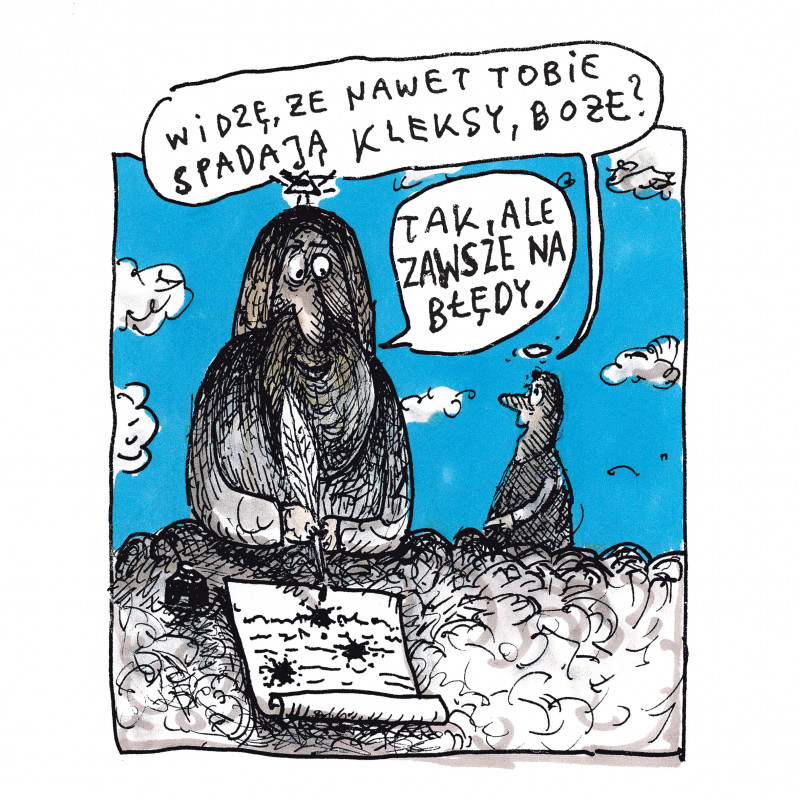 WIDZĘ, ŻE NAWET TOBIE
SPADAJĄ KLEKSY, BOŻE?
TAK, ALE
ZAWSZE NA
BŁĘDY.